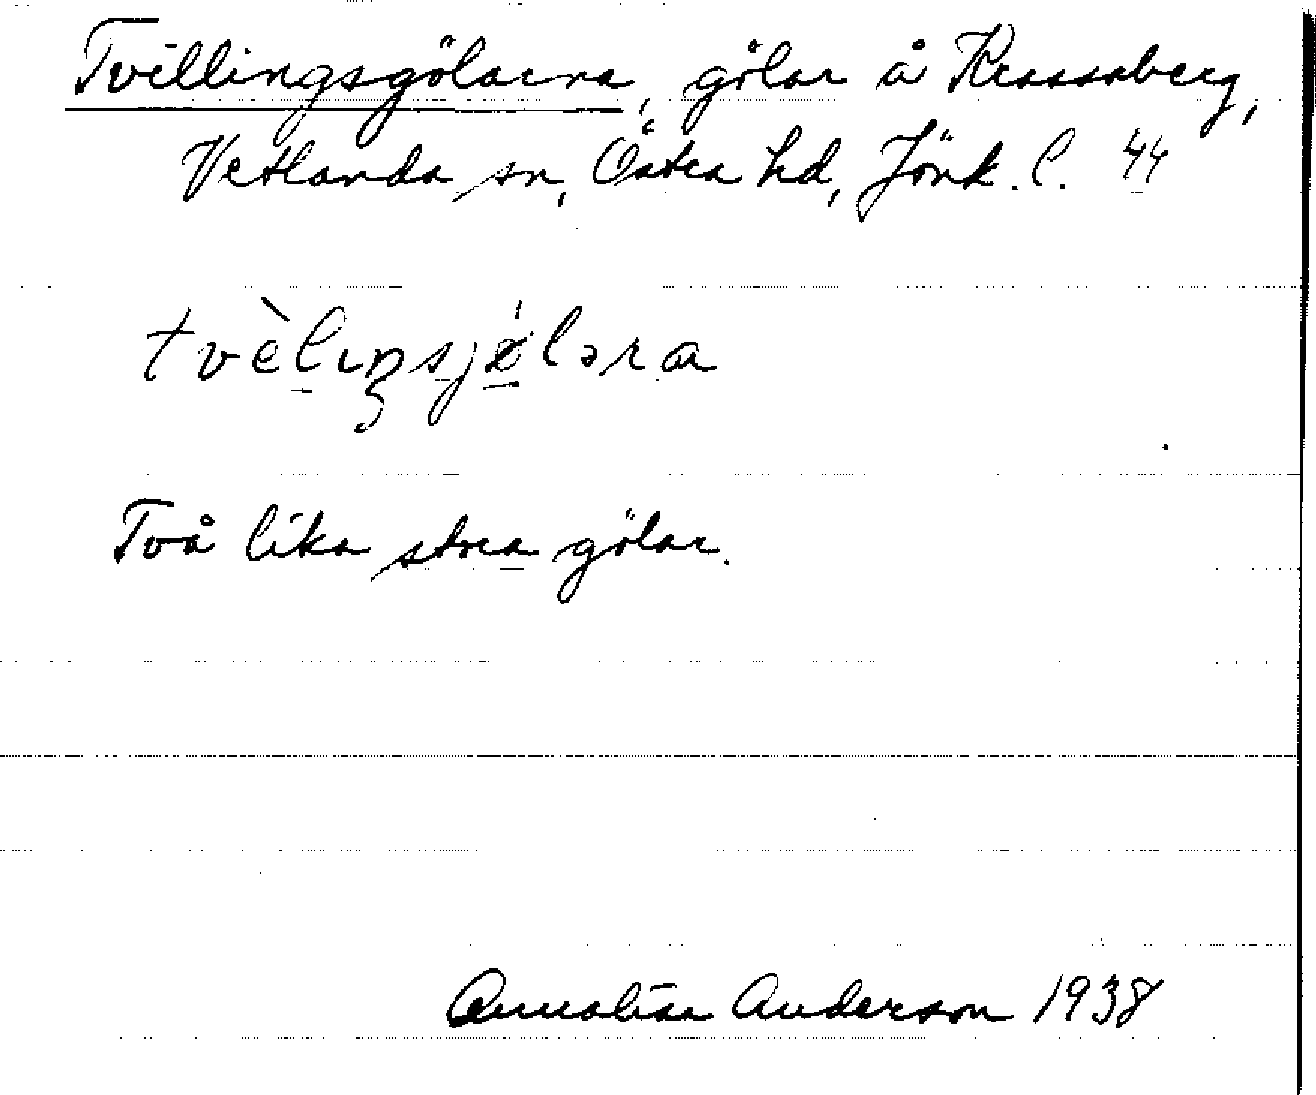 Tvillingsgölarna, gölar å Krassaberg,
Vetlanda sn, Östra hd, Jönk. l. 44
tvèlıŋsjǿləra
Två lika stora gölar.
Annalisa Anderson 1938